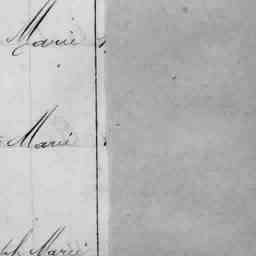 Marie
Marie
ph Marie